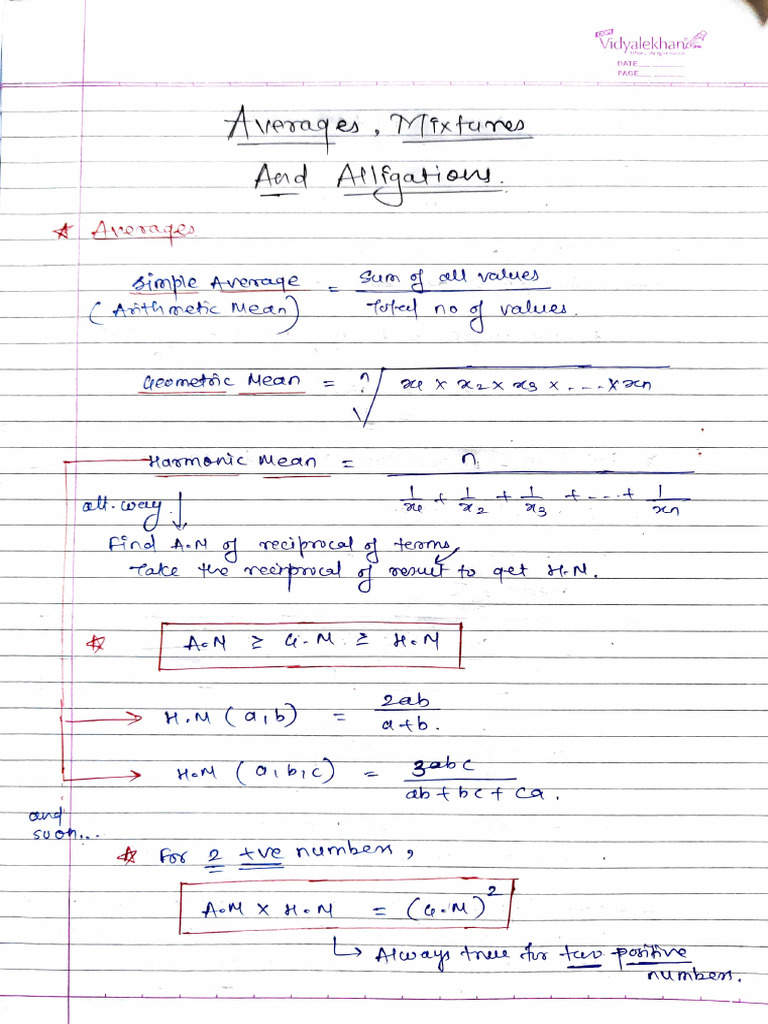 Vidyalekhan
DATE
PAGE
Averages, Mixtures
And Alligations.
☆ Averages
Simple Average = Sum of all values / Total no of values.
(Arithmetic Mean)
Geometric Mean = ⁿ√(x₁ × x₂ × x₃ × ... × xn)
Harmonic Mean = n / (1/x₁ + 1/x₂ + 1/x₃ + ... + 1/xn)
alt. way ↓
Find A.M of reciprocal of terms,
Take the reciprocal of result to get H.M.
☆ A.M ≥ G.M ≥ H.M
→ H.M (a,b) = 2ab / a+b.
→ H.M (a,b,c) = 3abc / ab + bc + ca.
and
so on...
☆ For 2 +ve numbers,
A.M × H.M = (G.M)²
↳ Always true for two positive
numbers.